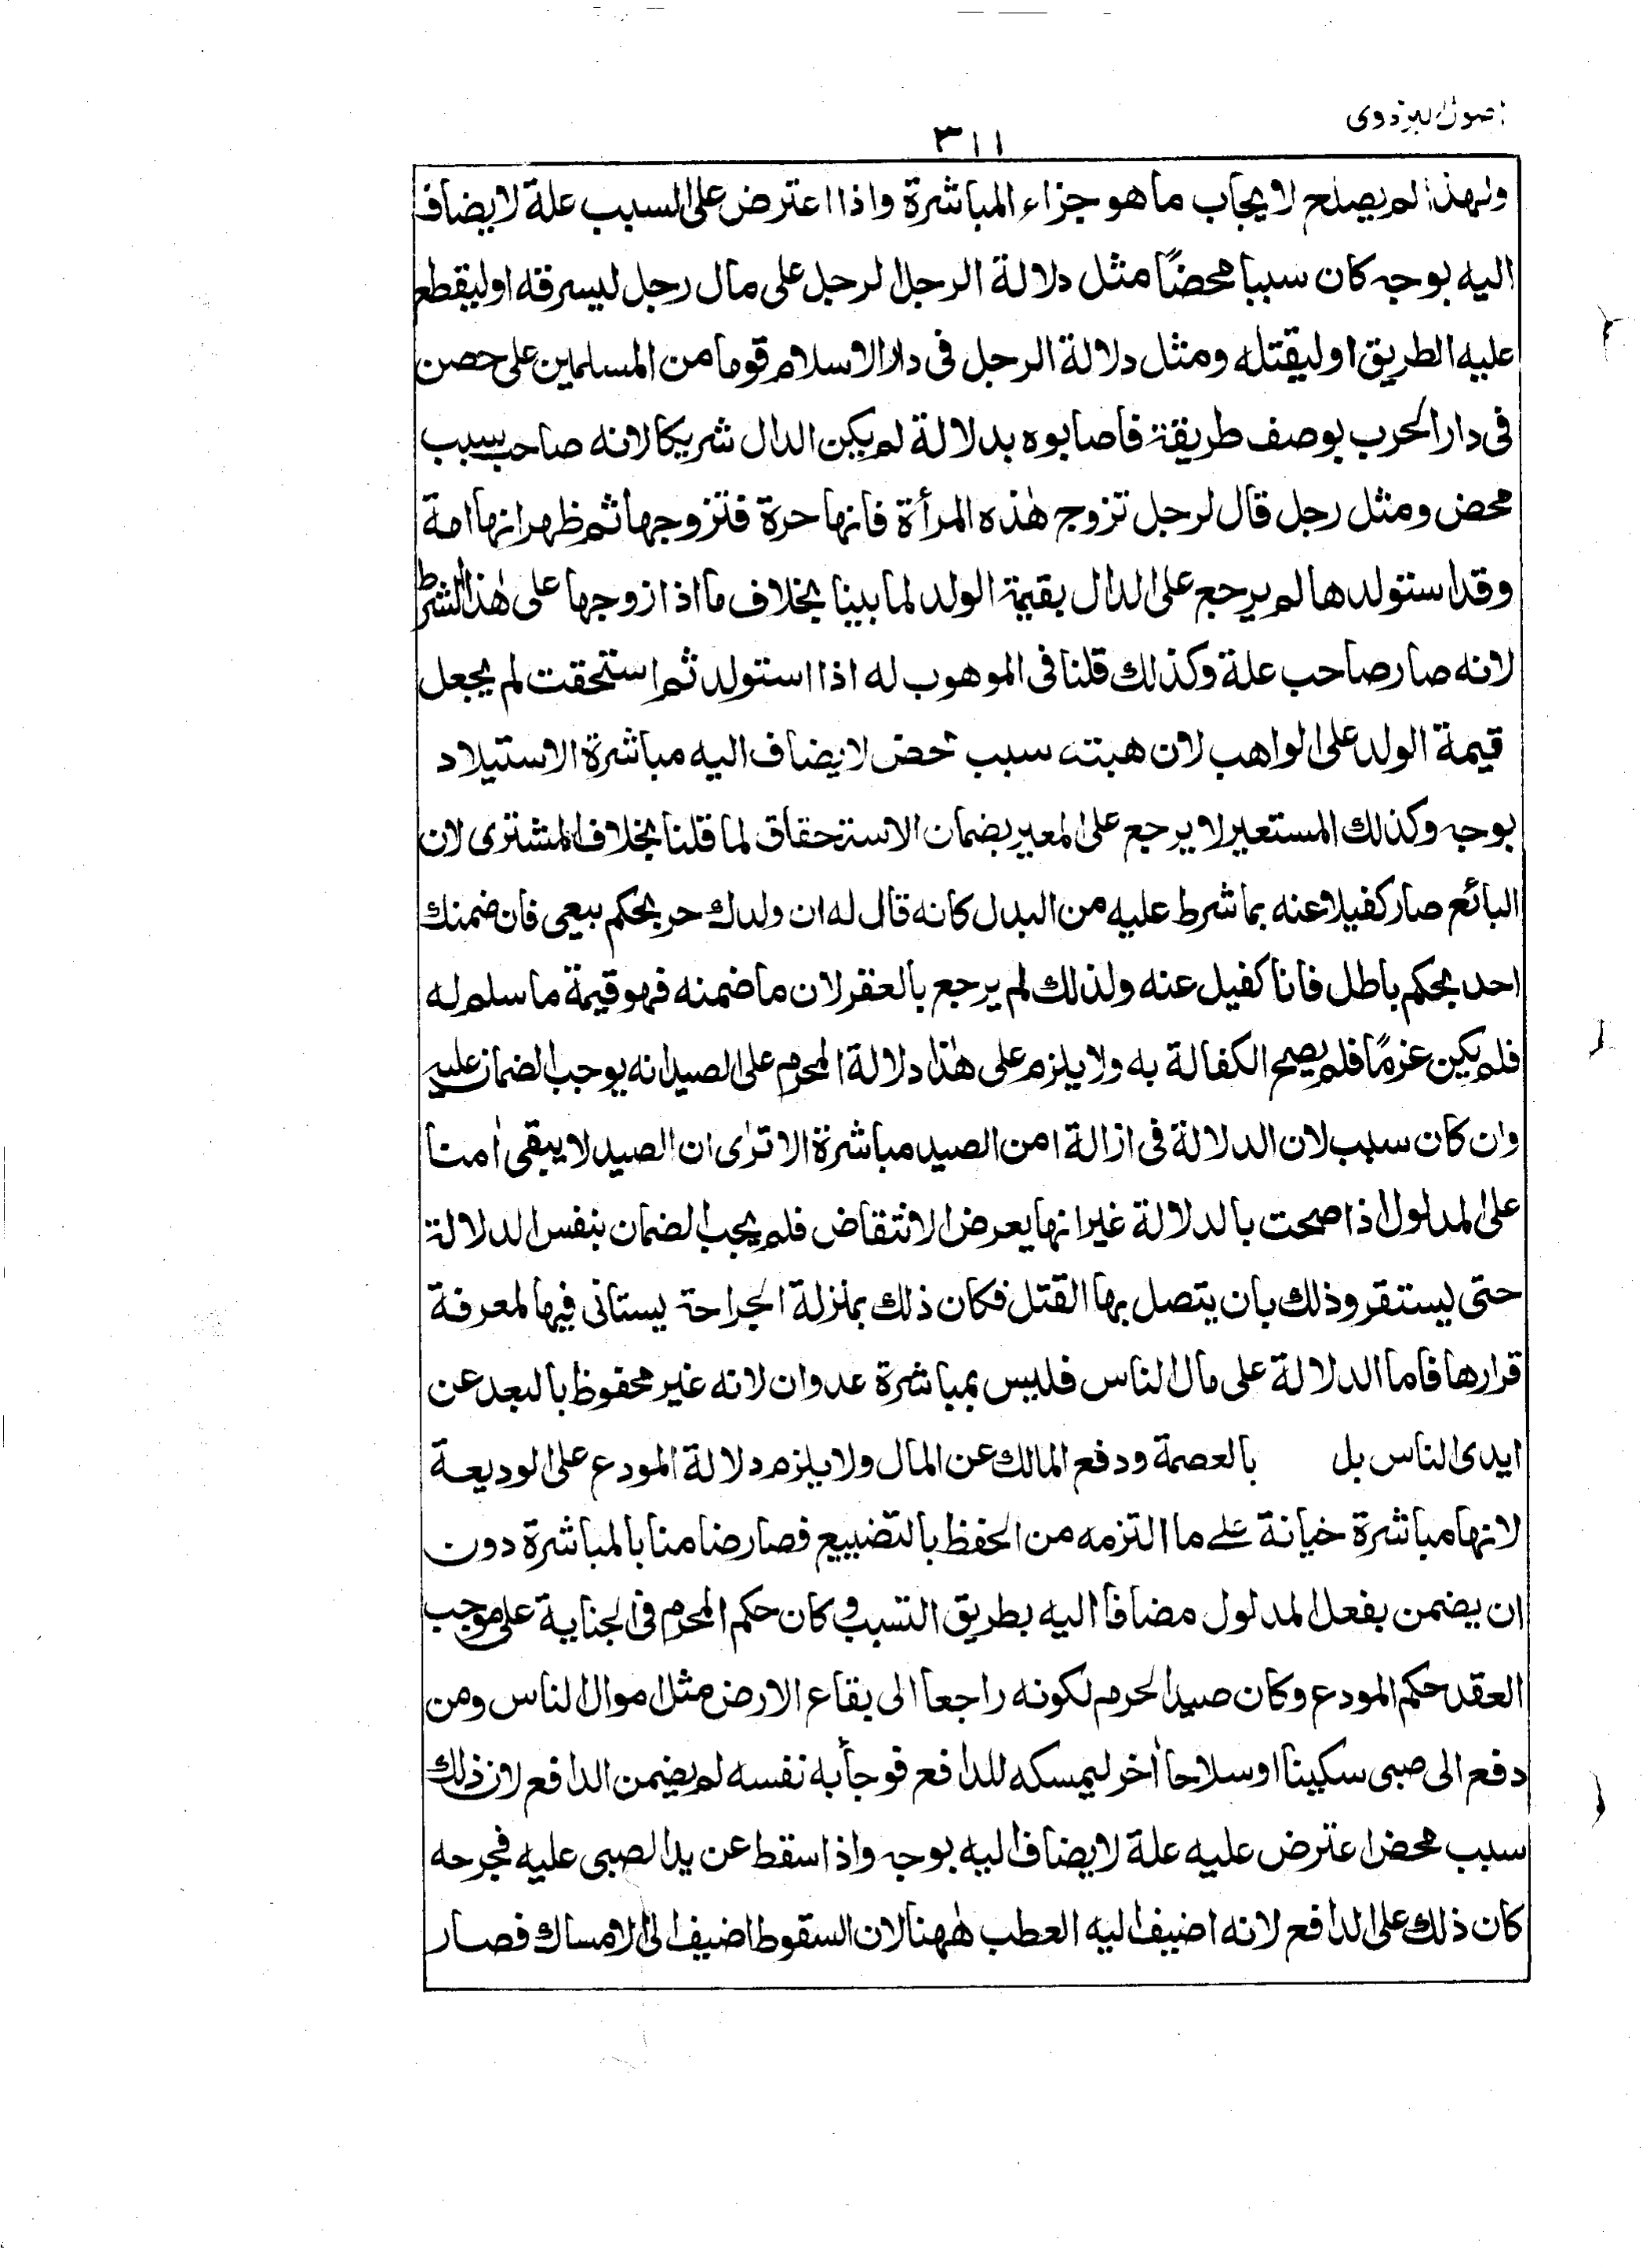 اصول بزدوی
٣١١
ولهذا لم يصلح لايجاب ما هو جزاء المباشرة واذا اعترض على السبب علة لا يضاف
اليه بوجه كان سببا محضًا مثل دلالة الرجل الرجل على مال رجل ليسرقه او ليقطع
عليه الطريق او ليقتله ومثل دلالة الرجل فى دار الاسلام قوما من المسلمين على حصن
فى دار الحرب بوصف طريقة فاصابوه بدلالة لم يكن الدال شريكا لانه صاحب سبب
محض ومثل رجل قال لرجل تزوج هٰذه المرأة فانها حرة فتزوجها ثم ظهر انها امة
وقد استولدها لم يرجع على الدال بقيمة الولد لما بينا بخلاف ما اذا زوجها على هٰذا الشرط
لانه صار صاحب علة وكذلك قلنا فى الموهوب له اذا استولد ثم استحقت لم يجعل
قيمة الولد على الواهب لان هبته سبب محض لا يضاف اليه مباشرة الاستيلاد
بوجه وكذلك المستعير لا يرجع على المعير بضمان الاستحقاق لما قلنا بخلاف المشترى لان
البائع صار كفيلا عنه بما شرط عليه من البدل كانه قال له ان ولدك حر بحكم بيعى فان ضمنك
احد بحكم باطل فانا كفيل عنه ولذلك لم يرجع بالعقر لان ما ضمنه فهو قيمة ما سلم له
فلم يكن غرمًا فلم يصح الكفالة به ولا يلزم على هٰذا دلالة المحرم على الصيد انه يوجب الضمان عليه
وان كان سبب لان الدلالة فى ازالة امن الصيد مباشرة الا ترٰى ان الصيد لا يبقى اٰمنا
على المدلول اذا صحت بالدلالة غير انها يعرض الانتقاض فلم يجب الضمان بنفس الدلالة
حتى يستقر وذلك بان يتصل بها القتل فكان ذلك بمنزلة الجراحة يستانى فيها لمعرفة
قرارها فاما الدلالة على مال الناس فليس بمباشرة عدوان لانه غير محفوظ بالبعد عن
ايدى الناس بل بالعصمة ودفع المالك عن المال ولا يلزم دلالة المودع على الوديعة
لانها مباشرة خيانة على ما التزمه من الحفظ بالتضييع فصار ضامنا بالمباشرة دون
ان يضمن بفعل المدلول مضافا اليه بطريق التسبب وكان حكم المحرم فى الجناية على موجب
العقد حكم المودع وكان صيد الحرم لكونه راجعا الى بقاع الارض مثل اموال الناس ومن
دفع الى صبى سكينا او سلاحا اٰخر ليمسكه للدافع فوجأ به نفسه لم يضمن الدافع لان ذلك
سبب محض اعترض عليه علة لا يضاف اليه بوجه واذا سقط عن يد الصبى عليه فجرحه
كان ذلك على الدافع لانه اضيف اليه العطب هٰهنا لان السقوط اضيف الى الامساك فصار